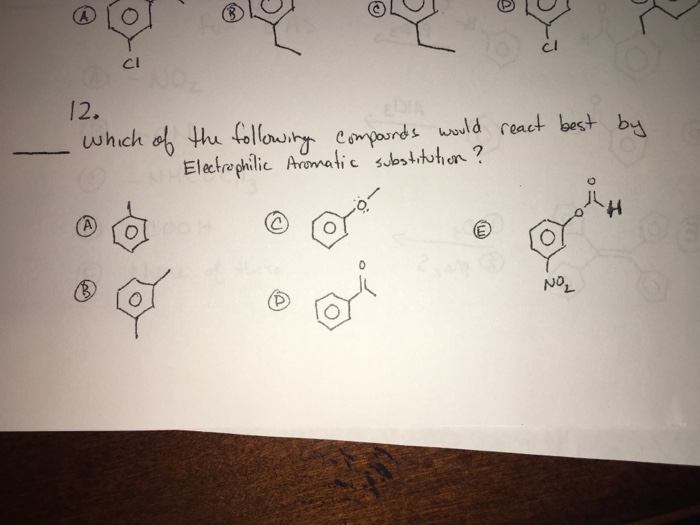 A B C D
Cl Cl
12.
which of the following compounds would react best by
Electrophilic Aromatic substitution ?
A C Ö E O O H
NO2
B D O